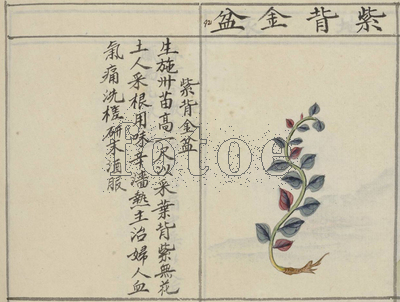 紫背金盆
紫背金盆
生施州苗高一尺以来葉背紫無花
土人采根用味辛濇熱主治婦人血
氣痛洗櫁研末酒服
totoe